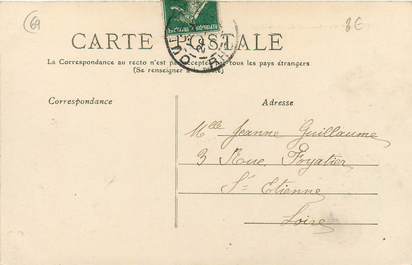 69
3€
CARTE POSTALE
La Correspondance au recto n'est pas acceptée par tous les pays étrangers
(Se renseigner à la Poste)
Correspondance
Adresse
Mlle Jeanne Guillaume
3 Rue, Foyatier
St Etienne
Loire